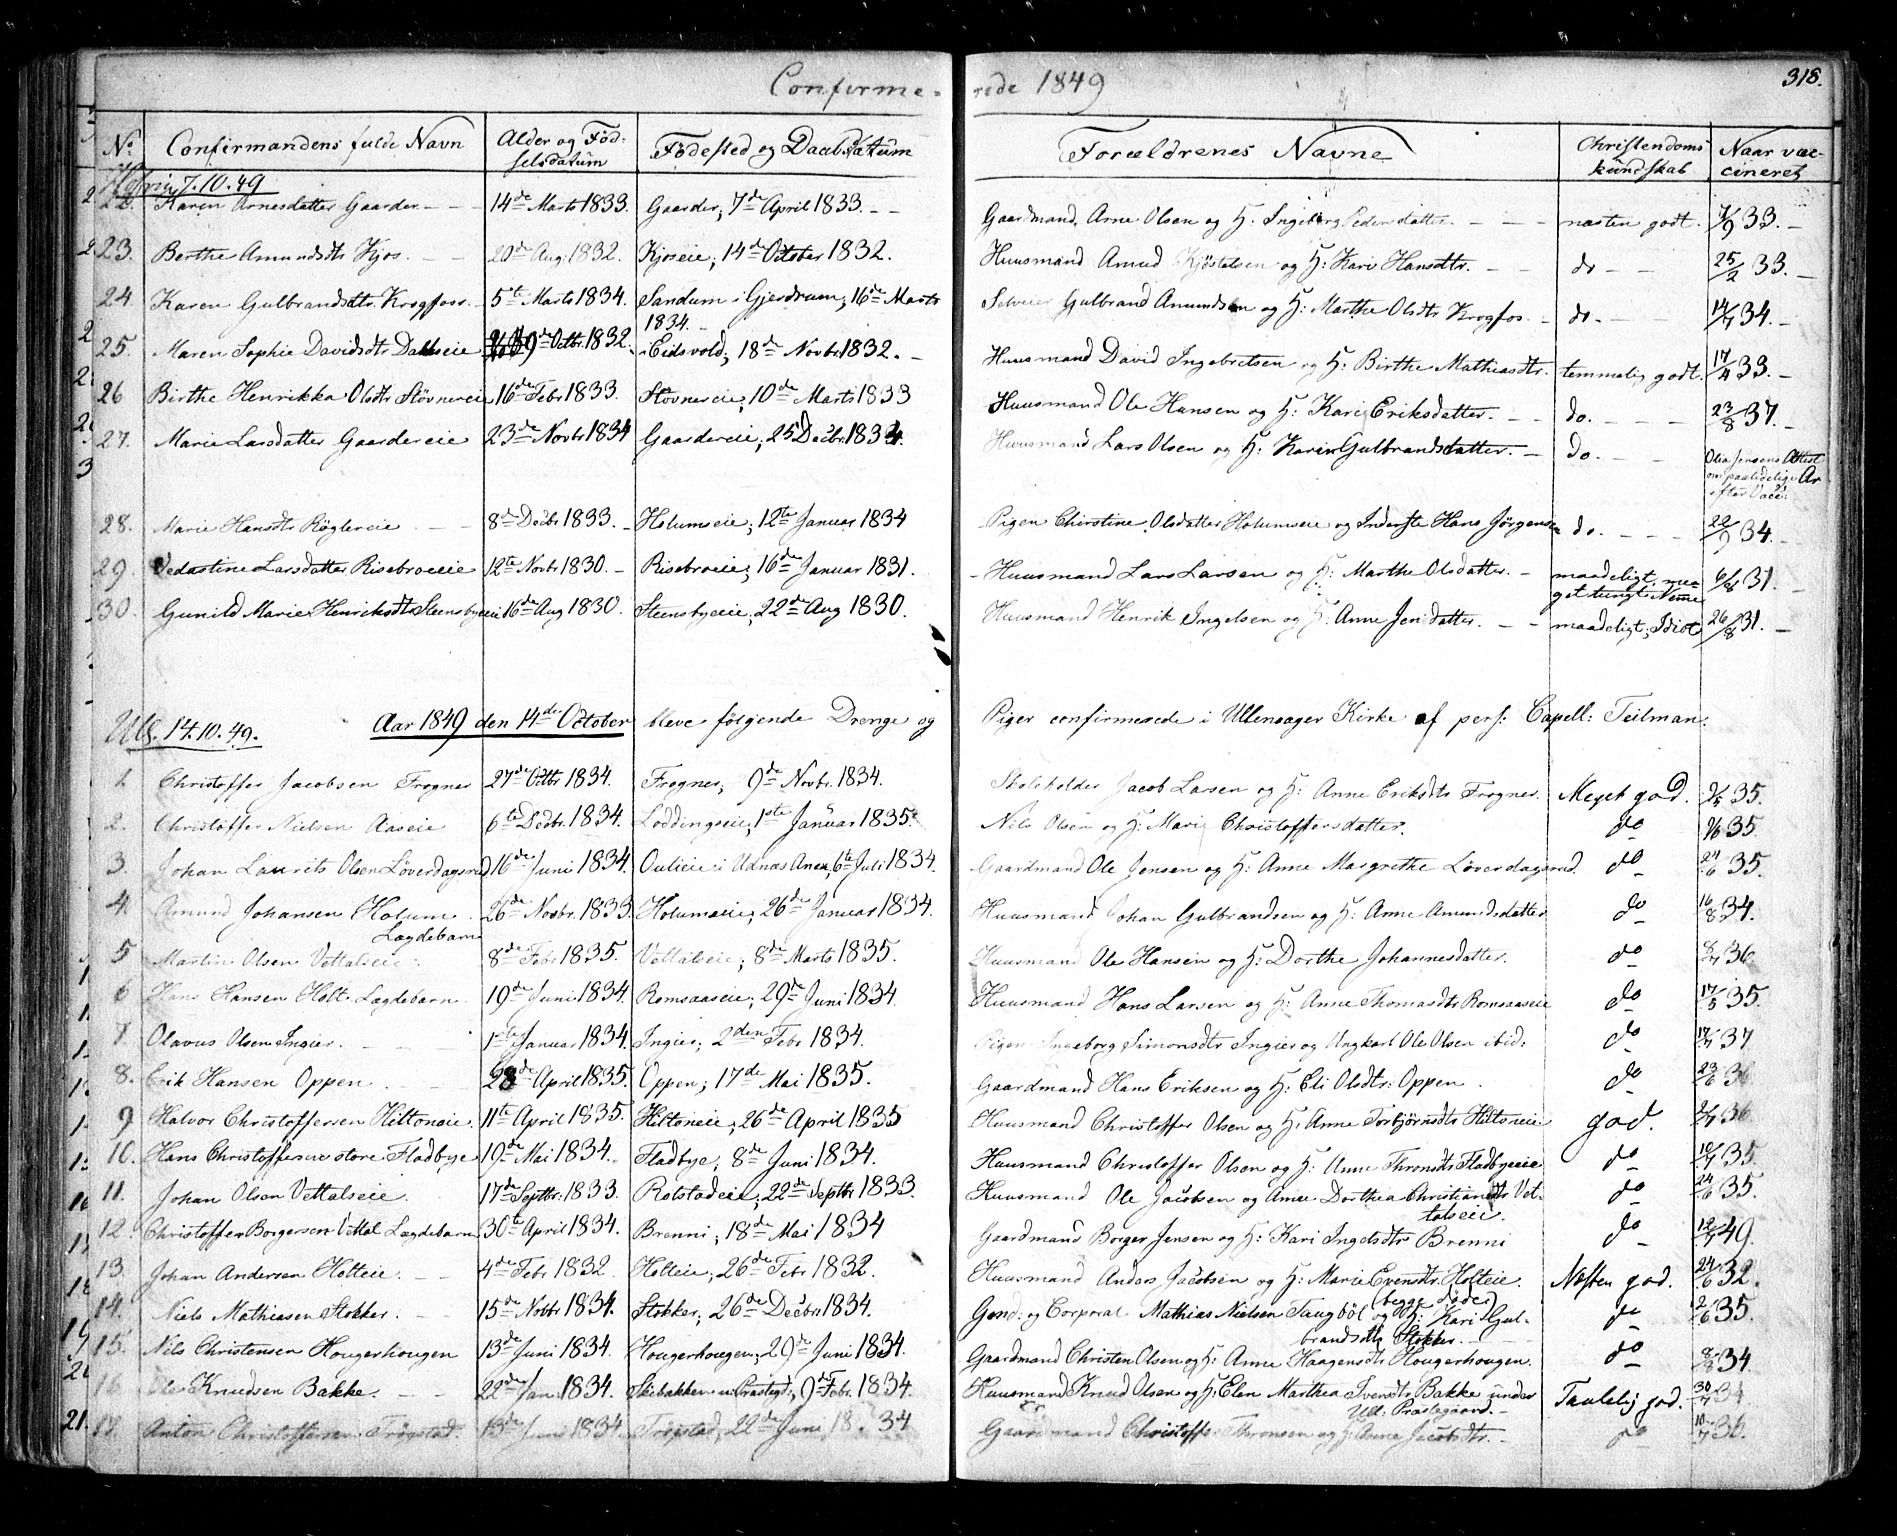 Confirme- rede 1849 318.
No Confirmandens fulde Navn Alder og Fød- Fødested og Daabsdatum Forældrenes Navne Christendoms Naar vac-
selsdatum kundskab cineret
7.10.49
22. Karen Arnesdatter Gaarder 14de Marts 1833. Gaarder, 7de April 1833. Gaardmand Arne Olsen og H: Ingeborg Pedersdatter. næsten godt. 7/9 33.
23. Berthe Amundsdtr Kjos. 20de Aug. 1832. Kjoseie, 14de October 1832. Huusmand Amud Kjøstelsen og H: Kari Hansdtr. do 25/2 33.
24 Karen Gulbrandsdtr. Krogfoss. 5te Marts 1834. Sandum i Gjerdrum, 16de Marts Selveier Gulbrand Amundsen og H: Marthe Olsdtr Krogfos. do. 14/7 34.
1834.
25. Maren Sophie Davidsdtr Dahlseie 9de Octbr. 1832. i Eidsvold, 18de Novbr 1832. Huusmand David Ingebretsen og H: Birthe Mathiasdtr. temmelig godt. 17/4 33.
26 Birthe Henrikka Olsdtr Støvnereie 16de Febr 1833. Støvnereie, 10de Marts 1833 Huusmand Ole Hansen og H: Kari Eriksdatter. do. 23/8 37.
27. Marie Larsdatter Gaardereie 23de Novbr 1834 Gaardereie, 25 Decbr. 1834. Huusmand Lars Olsen og H: Karin Gulbrandsdatter. do. Olia Jensens Attest
om paalidelige Ar
efter Vacc.
28. Marie Hansdtr Røglereie 8de Decbr 1833. Holumseie, 12te Januar 1834 Pigen Christine Olsdatter Holumseie og Inderste Hans Jørgensen do. 22/9 34.
29. Vedastine Larsdatter Risebroeeie 12te Novbr 1830. Risebroeie, 16de Januar 1831. Huusmand Lars Larsen og H: Marthe Olsdatter. maadeligt, me- 6/8 31.
get tungt Nemme
30. Gunild Marie Henriksdtr Steensbyeeie 16de Aug 1830. Steensbyeeie, 22de Aug 1830. Huusmand Henrik Ingelsen og H: Anne Jensdatter. maadeligt, Idiot 26/8 31.
Ull. 14.10.49. Aar 1849 den 14de October bleve følgende Drenge og Piger confirmerede i Ullensager Kirke af pers: Capell: Teilman.
1. Christoffer Jacobsen Frogner 27de Octbr 1834. Frogner, 9de Novbr. 1834. Skoleholder Jacob Larsen og H: Anne Eriksdtr Frogner. Meget god. 9/5 35.
2. Christoffer Nielsen Aaseie 6te Decbr. 1834. Loddingseie, 1ste Januar 1835. Nils Olsen og H: Mari Christoffersdatter. do 35.
3. Johan Laurits Olsen Løverdagsrud 16de Juni 1834. Oulieie i Udnæs Anex, 6te Juli 1834. Gaardmand Ole Jensen og H: Anne Margrethe Løverdagsrud. do 24/6 35.
4. Amund Johansen Holum. 26de Novbr. 1833. Holumseie, 26de Januar 1834. Huusmand Johan Gulbrandsen og H: Anne Amundsdatter do 16/8 34.
Lægdebarn
5 Martin Olsen Vettalseie. 8de Febr 1835. Vettalseie, 8de Marts 1835. Huusmand Ole Hansen og H: Dorthe Johannesdatter. do 8/7 36.
6 Hans Hansen Holt. Lægdebarn. 19de Juni 1834. Romsaaseie, 29de Juni 1834. Huusmand Hans Larsen og H: Anne Thomasdtr Romsaaseie do 17/5 35.
7. Olavus Olsen Ingier. 1ste Januar 1834. Ingier, 2den Febr 1834. Pigen Ingeborg Simonsdtr Ingier og Ungkarl Ole Olsen ibid: do 17/7 37
8. Erik Hansen Oppen 28de April 1835. Oppen, 17de Mai 1835. Gaardmand Hans Eriksen og H: Eli Olsdtr: Oppen. do 23/6 36
9 Halvor Christoffersen Hiltoneie. 11te April 1835. Hiltoneie, 26de April 1835 Huusmand Christoffer Olsen og H: Anne Torbjørnsdtr Hiltoneie god. 2/7 36.
10. Hans Christoffersen store Fladbye 19de Mai 1834. Fladbye, 8de Juni 1834. Huusmand Christoffer Olsen og H: Anne Thronsdtr Fladbyeeie do 10/7 35.
11. Johan Olsen Vettalseie. 17de Septbr. 1833. Rolstadeie, 22de Septbr 1833. Huusmand Ole Jacobsen og Anne Dorthea Christiansdtr Vet- do 24/6 35.
talseie.
12. Christoffer Borgersen Vettal Lægdebarn 30te April 1834. Brenni, 18de Mai 1834 Gaardmand Borger Jensen og H: Kari Ingelsdtr Brenni do 12/7 49.
13. Johan Andersen Holteie. 4de Febr 1832 Holteie, 26de Febr 1832. Huusmand Anders Jacobsen og H: Marie Evensdtr. Holteie. Næsten god. 24/6 32.
(begge døde)
14. Niels Mathiasen Stokker. 15de Novbr 1834. Stokker, 26de Decbr. 1834. Gend: og Corporal Mathias Nielsen Taugbøl og H: Kari Gul- do 2/6 35.
brandsdtr Stokker.
15. Nils Christensen Hougerhougen 13de Juni 1834. Hougerhougen, 29de Juni 1834. Gaardmand Christen Olsen og H: Anne Haagensdtr Hougerhougen. do 8/8 34.
16. Ole Knudsen Bakke. 22de Jan. 1834. Skibakken u. Præstegd:, 9de Febr. 1834. Huusmand Knud Olsen og H: Elen Marthea Svensdtr Bakke under Taalelig god. 30/7 34
Ull: Præstegaard.
17. Anton Christoffersen Trøgstad. 13de Juni 1834. Trøgstad, 22de Juni 1834 Gaardmand Christoffer Thronsen og H: Anne Jacobsdtr. do 10/7 36.